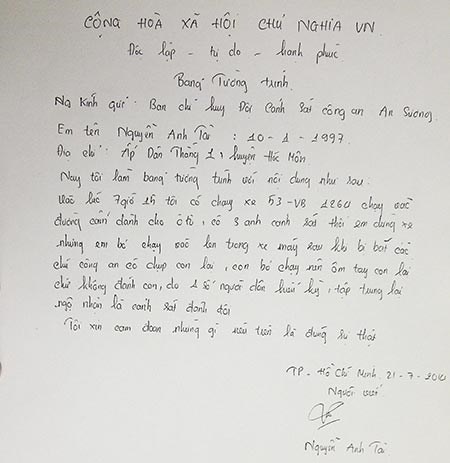 CỘNG HOÀ XÃ HỘI CHỦ NGHĨA VN
Độc lập - tự do - hạnh phúc
Bảng Tường trình
Ban chỉ huy Đội Cảnh sát công an An Sương
Em tên Nguyễn Anh Tài : 10 - 1 - 1997
Địa chỉ : Ấp Dân Thắng 1, huyện Hóc Môn
Nay tôi làm bảng tường trình với nội dung như sau:
Vào lúc 7giờ 15 tôi có chạy xe 53-VB 1264 chạy vào
đường cấm dành cho ô tô, có 3 anh cảnh sát thổi em dừng xe
nhưng em bỏ chạy vào len trong xe máy sau khi bị bắt các
chú công an có chụp con lại, con bỏ chạy nên ôm tay con lại
chứ không đánh con, do 1 số người dân hiếu kỳ, tập trung lại
ngộ nhận là cảnh sát đánh tôi
Tôi xin cam đoan những gì nêu trên là đúng sự thật
TP - Hồ Chí Minh, 21 - 7 -
Người
Nguyễn Anh Tài